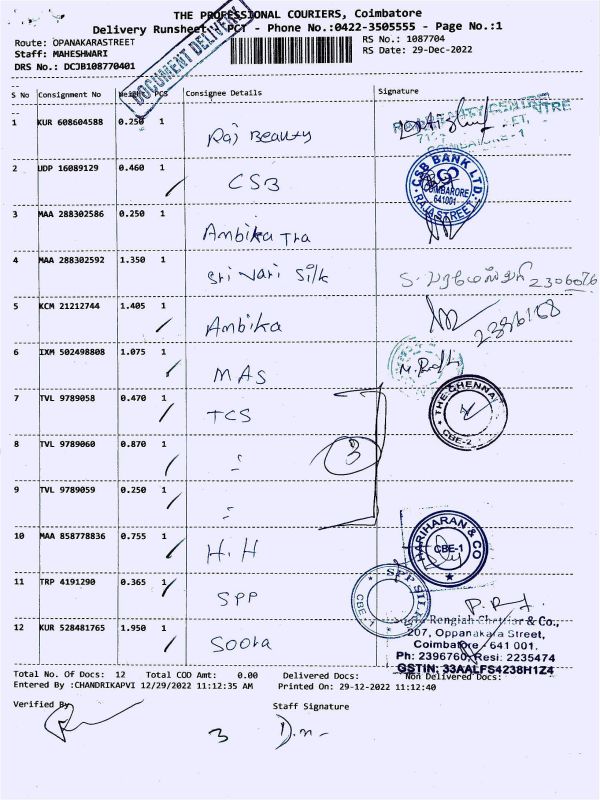 THE PROFESSIONAL COURIERS, Coimbatore
Delivery Runsheet PCT - Phone No.:0422-3505555 - Page No.:1
DOCUMENT DELIVERY
Route: OPANAKARASTREET
RS No.: 1087704
Staff: MAHESHWARI
RS Date: 29-Dec-2022
DRS No.: DCJB108770401
S No Consignment No Weight PCS Consignee Details Signature
1 KUR 608604588 0.250 1 Raj Beauty
2 UDP 16089129 0.460 1 CSB
CSB BANK LTD. COIMBATORE 641001 RAJA STREET
3 MAA 288302586 0.250 1 Ambika Tra
4 MAA 288302592 1.350 1 Sri Vari Silk
5 KCM 21212744 1.405 1 Ambika
6 IXM 502498808 1.075 1 MAS
7 TVL 9789058 0.470 1 TCS
THE CHENNAI CBE-2
8 TVL 9789060 0.870 1 3
9 TVL 9789059 0.250 1
10 MAA 858778836 0.755 1 H.H
HARIHARAN & CO CBE-1
11 TRP 4191290 0.365 1 SPP
SPP SIL CBE-1
12 KUR 528481765 1.950 1
Rengiah Chettiar & Co.,
207, Oppanakara Street,
Coimbatore - 641 001.
Ph: 2396760, Resi: 2235474
GSTIN: 33AALFS4238H1Z4
Total No. Of Docs: 12 Total COD Amt: 0.00 Delivered Docs: Non Delivered Docs:
Entered By :CHANDRIKAPVI 12/29/2022 11:12:35 AM Printed On: 29-12-2022 11:12:40
Verified By Staff Signature
3